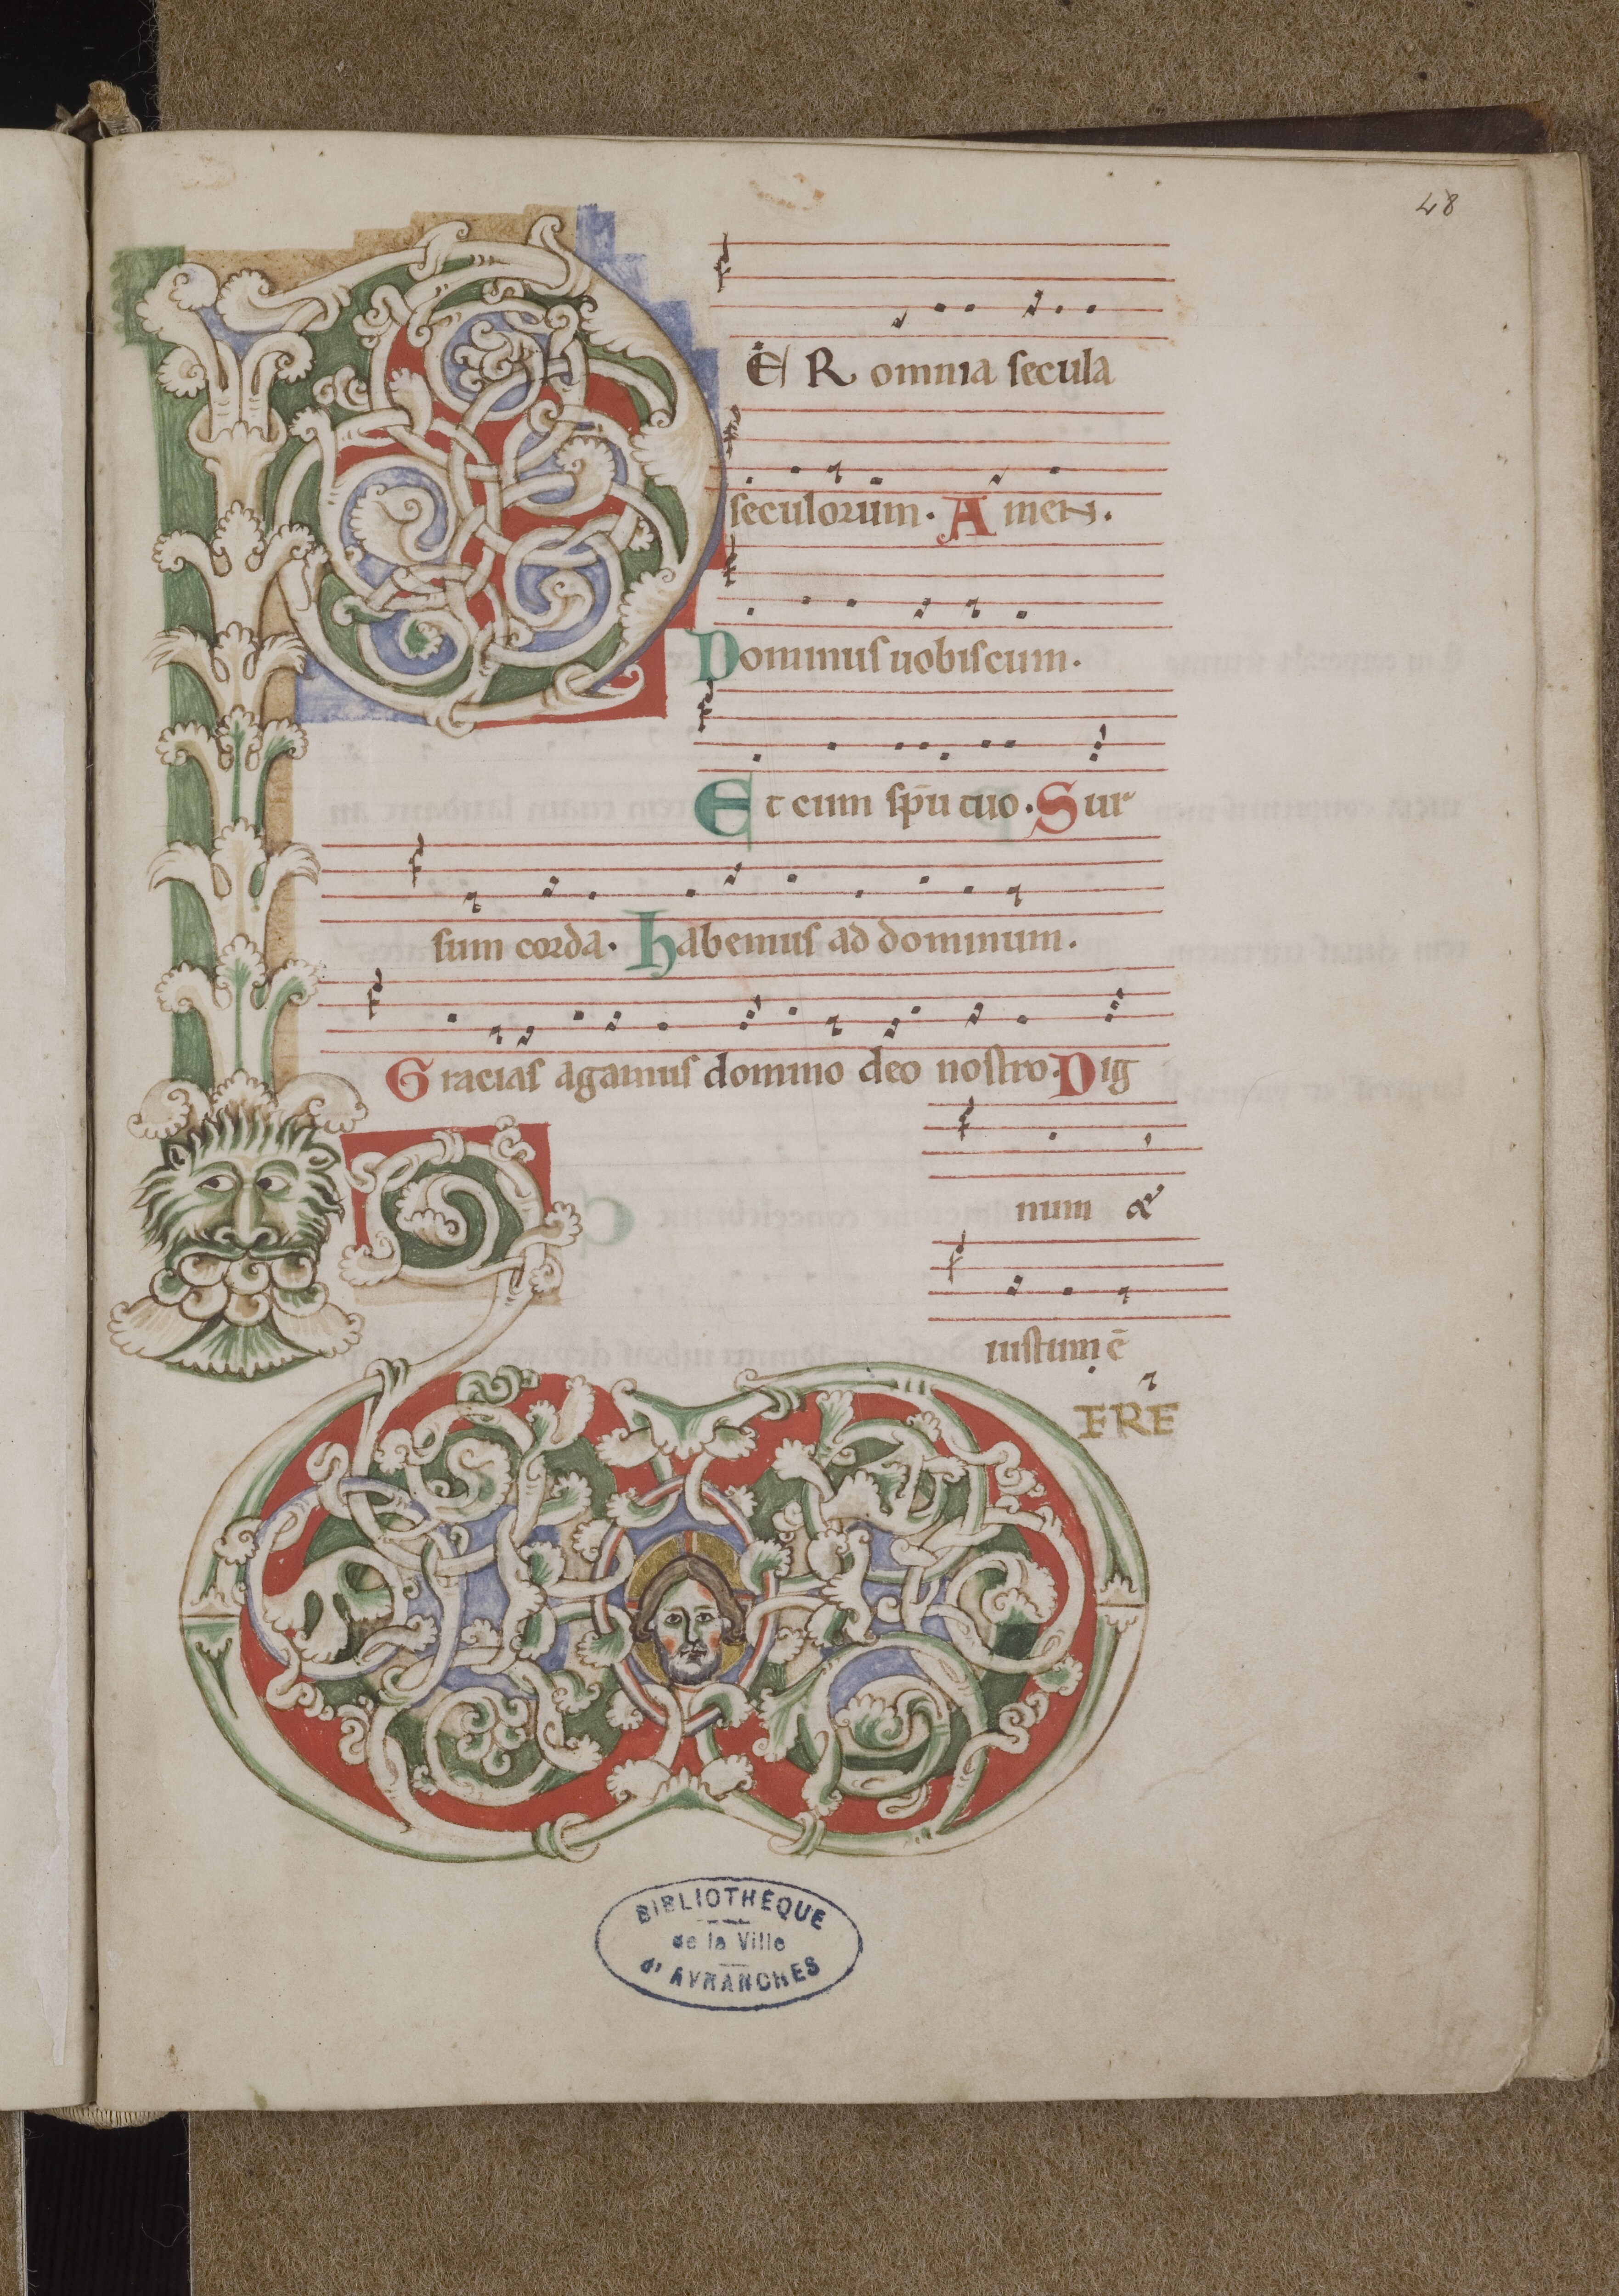 48
PER omnia secula
seculorum. Amen.
Dominus uobiscum.
Et cum sp̄u tuo. Sur
sum corda. habemus ad dominum.
Gracias agamus domino deo nostro. Dig
num &
iustum ē
UERE
BIBLIOTHÈQUE
de la Ville
d'AVRANCHES